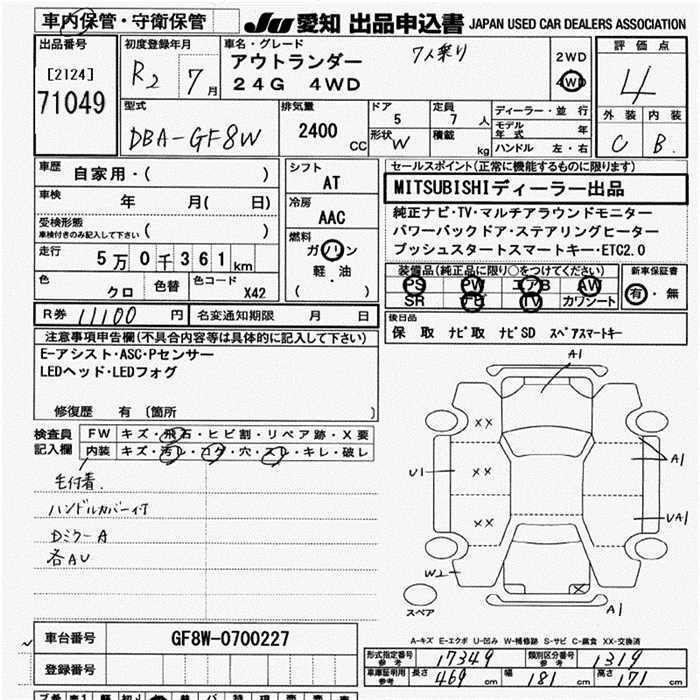 車内保管・守衛保管
JU 愛知 出品申込書 JAPAN USED CAR DEALERS ASSOCIATION
出品番号
[2124]
71049
初度登録年月
R2 7月
車名・グレード
アウトランダー
24G 4WD
7人乗り
2WD
4WD
評価点
4
外装 内装
C B.
型式
DBA-GF8W
排気量
2400 CC
ドア
5
形状 W
定員
7人
積載 kg
ディーラー・並行
モデル年式 年
ハンドル 左・右
車歴
自家用・( )
車検
年 月( 日)
受検形態
車検付きのみ記入して下さい
( )
走行
5万0千361km
色
クロ
色替
色コード
X42
シフト
AT
冷房
AAC
燃料
ガソリン
軽・油
( )
セールスポイント(正常に機能するものに限ります)
MITSUBISHIディーラー出品
純正ナビ・TV・マルチアラウンドモニター
パワーバックドア・ステアリングヒーター
プッシュスタートスマートキー・ETC2.0
装備品(純正品に限り○をつけてください)
PS PW エアB AW
SR ナビ TV カワシート
新車保証書
有・無
R券 11100円
名変通知期限 月 日
後日品
保 取 ナビ取 ナビSD スペアスマートキー
注意事項申告欄(不具合内容等は具体的に記入して下さい)
E-アシスト・ASC・Pセンサー
LEDヘッド・LEDフォグ
修復歴 有 〔箇所 〕
検査員記入欄
FW キズ・飛石・ヒビ割・リペア跡・X要
内装 キズ・汚レ・コゲ・穴・スレ・キレ・破レ
毛付着.
ハンドルカバー付
DミラーA
各AU
A1
××
A1
U1
××
UA1
××
W2
×
A1
スペア
A-キズ E-エクボ U-凹み W-補修跡 S-サビ C-腐食 XX-交換済
車台番号 GF8W-0700227
登録番号
形式指定番号 参考 17349
類別区分番号 参考 1319
車庫証明用 参考 長さ 469cm 幅 181cm 高さ 171cm